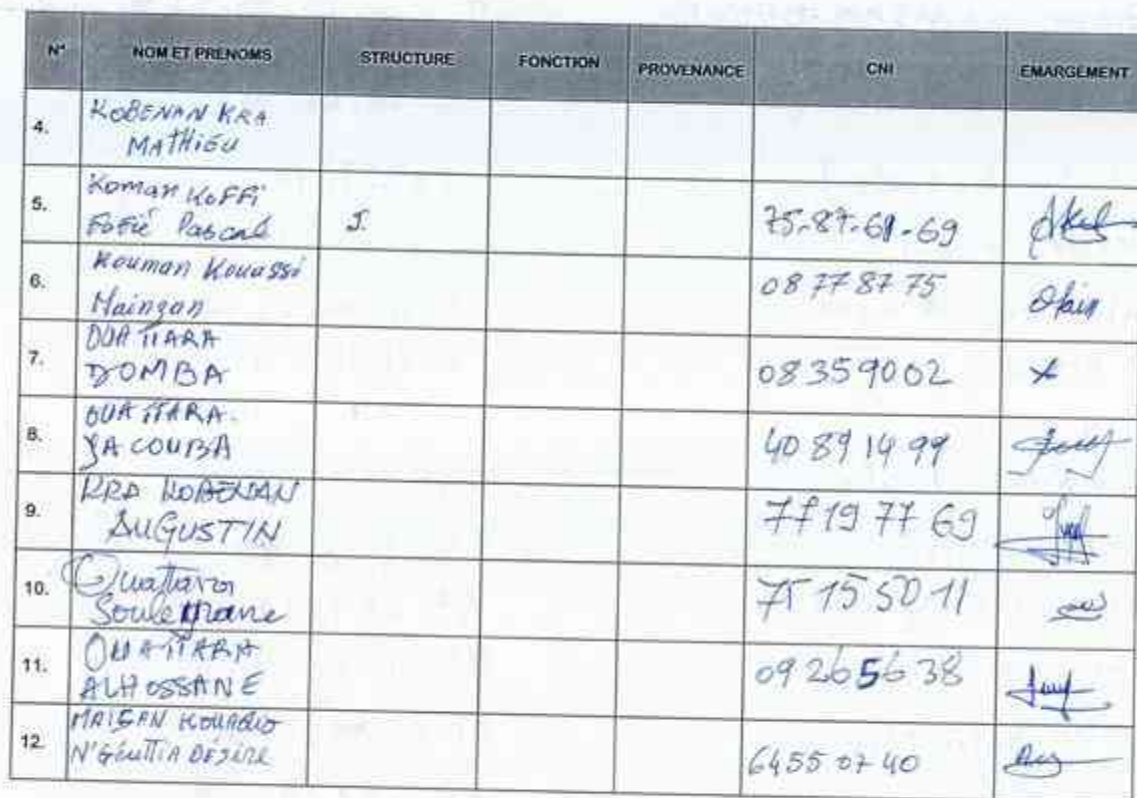 N° NOM ET PRENOMS STRUCTURE FONCTION PROVENANCE CNI EMARGEMENT
4. KOBENAN KRA
MATHIEU
5. Koman KOFFI
Fofié Pascal J. 75-87-61-69
6. Kouman Kouassi
Maingan 08 77 87 75
7. OUATTARA
DOMBA 08 35 90 02 X
8. OUATTARA
YACOUBA 40 89 14 99
9. KRA KOBENAN
AUGUSTIN 77 19 77 69
10. Ouattara
Souleymane 75 15 50 11
11. OUATTARA
ALHOSSANE 09 26 56 38
12. MAIGAN KOUADIO
DÉSIRÉ 64 55 07 40